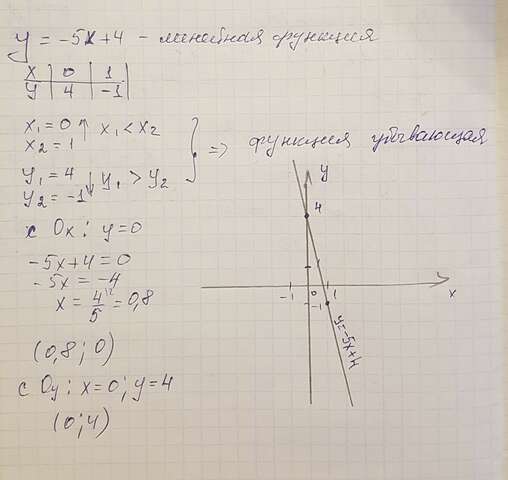 y = -5x+4 - линейная функция
x | 0 | 1
y | 4 | -1
x₁=0 ↑ x₁ < x₂
x₂=1
} => функция убывающая
y₁=4 ↓ y₁ > y₂
y₂=-1
с Ox: y=0
-5x+4=0
-5x=-4
x=4/5=0,8
(0,8; 0)
с Oy: x=0; y=4
(0;4)
y
4
-1 0 1
x
-1
y=-5x+4